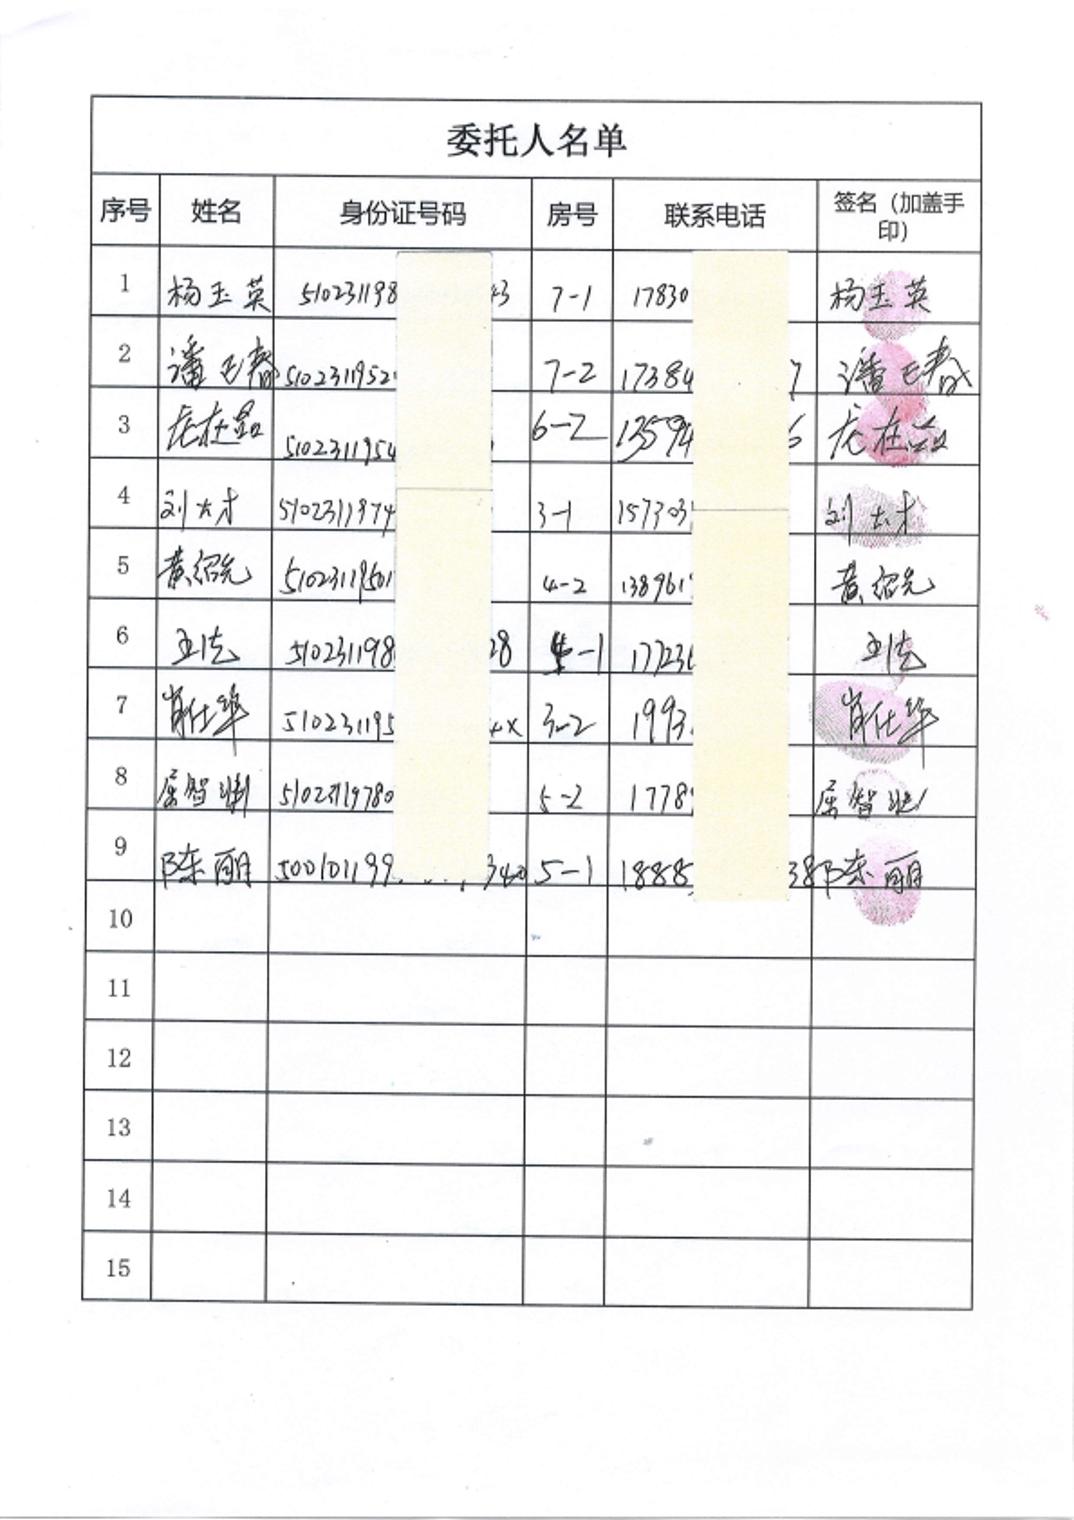 委托人名单
序号 姓名 身份证号码 房号 联系电话 签名（加盖手印）
1 杨玉英 510231198 43 7-1 17830 杨玉英
2 潘 春 5102311952 7-2 17384 7 潘 春
3 龙在 5102311954 6-2 13594 6 龙在
4 刘大才 5102311974 3-1 157303 刘大才
5 黄绍先 51023119501 4-2 138961 黄绍先
6 510231198 28 -1 17723
7 肖仕华 510231195 4X 3-2 1993 肖仕华
8 屈智 5-2 1778 屈智
9 陈丽 500101199 340 5-1 1888 38 陈丽
10
11
12
13
14
15